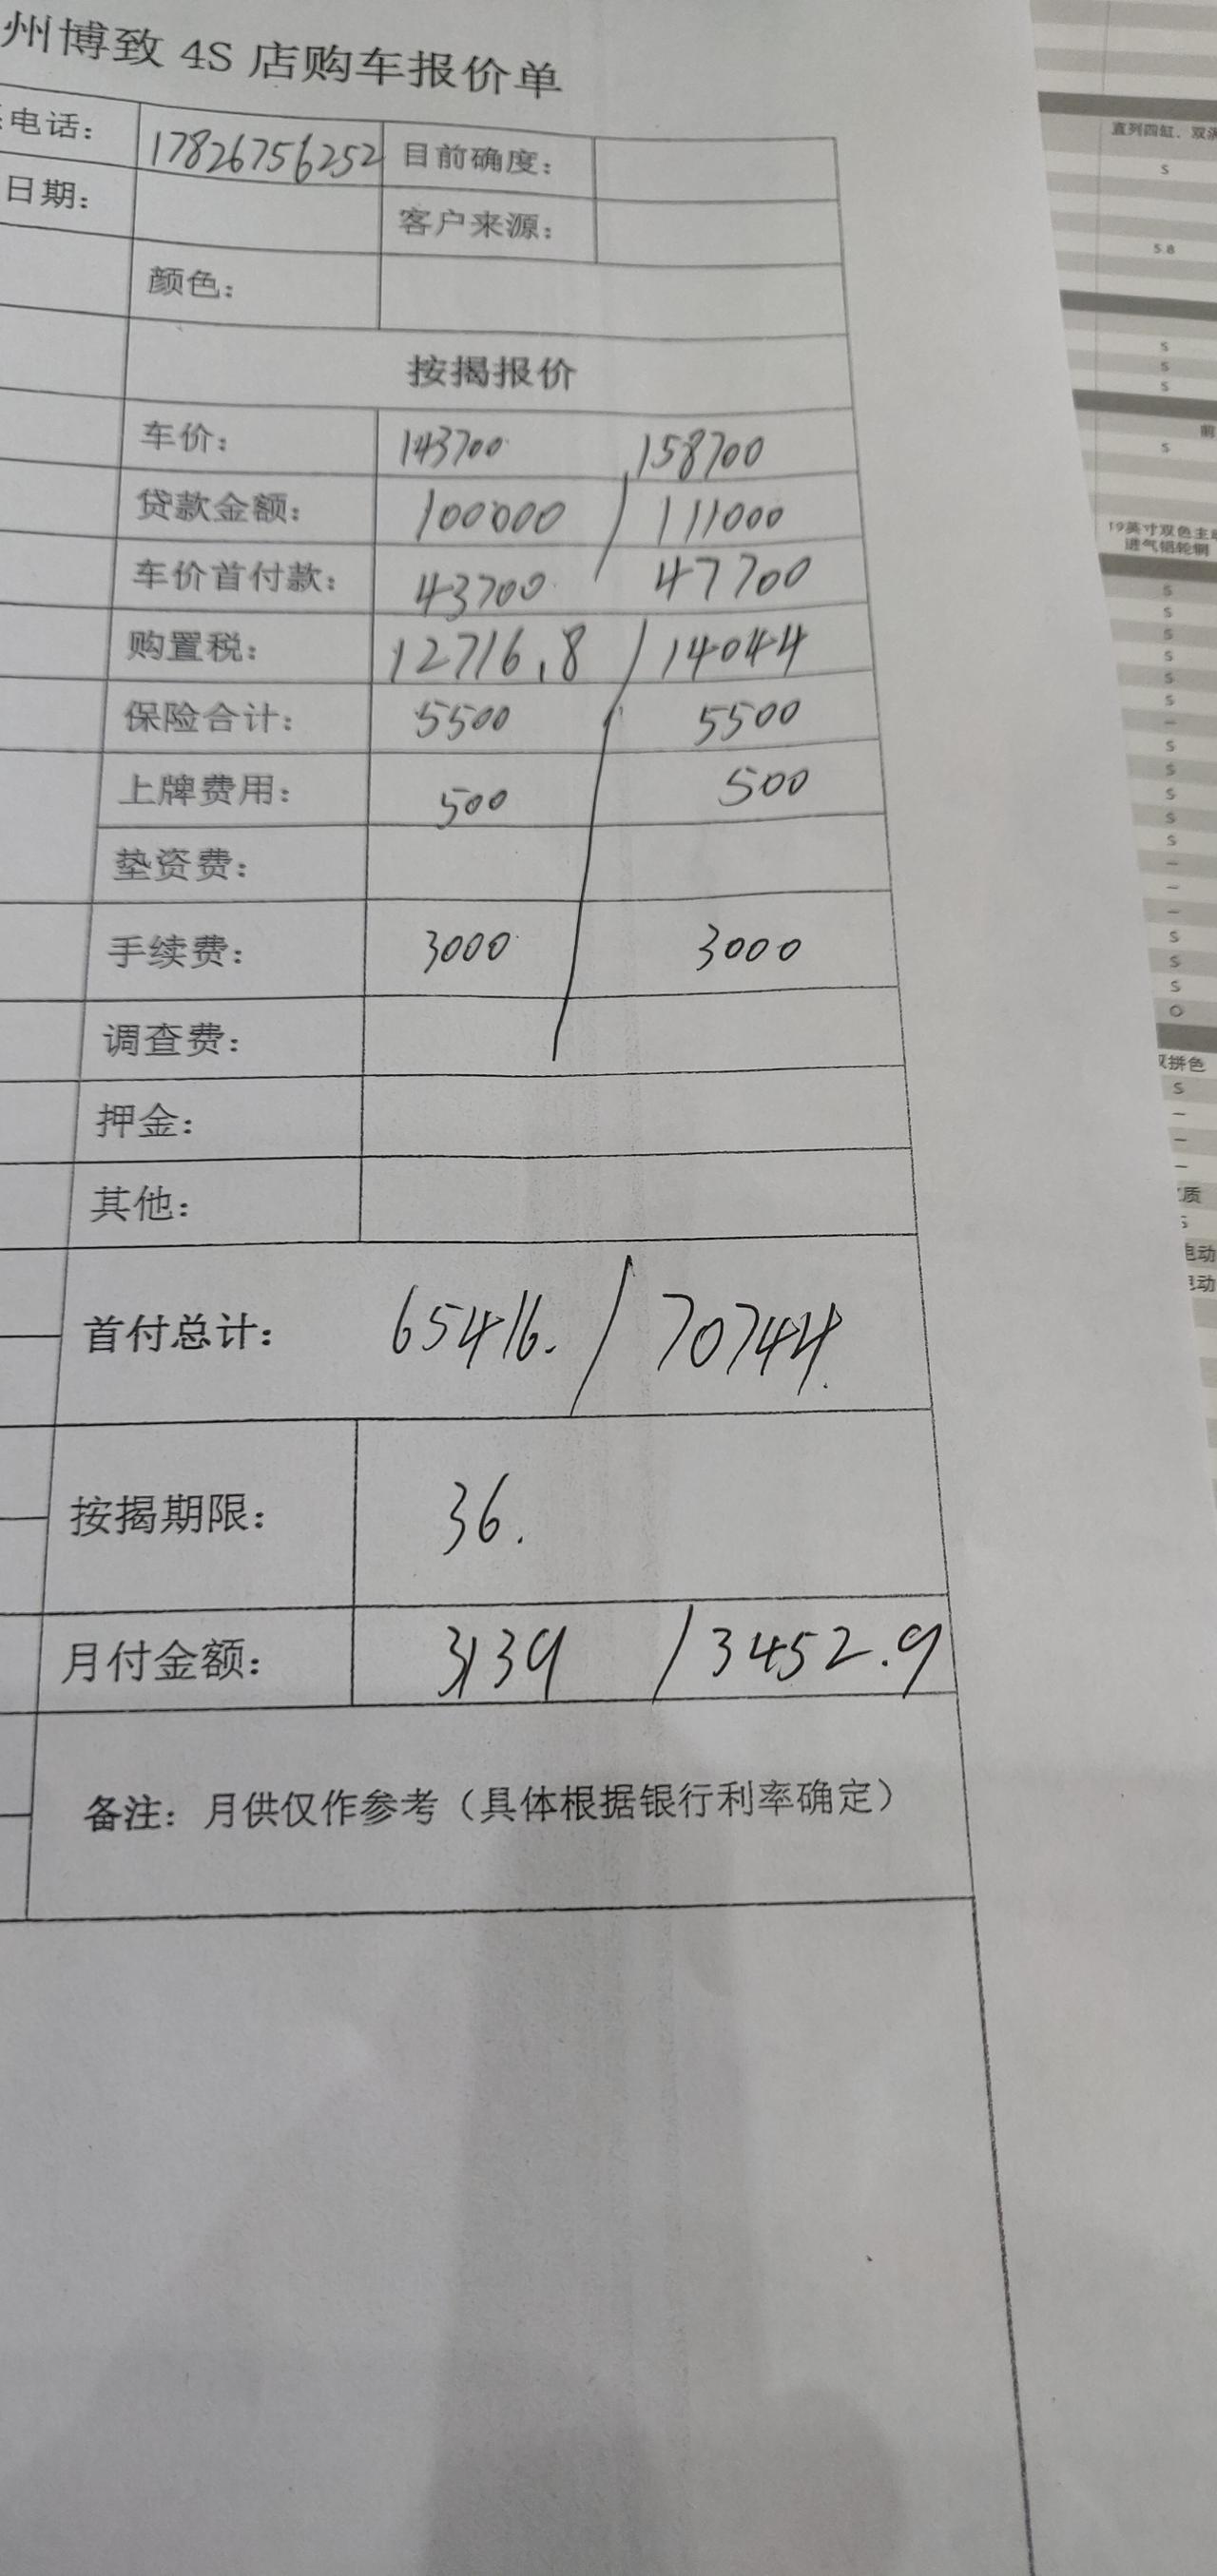 州博致 4S 店购车报价单
电话： 17826756252 目前确度：
日期： 客户来源：
颜色：
按揭报价
车价： 143700 158700
贷款金额： 100000 / 111000
车价首付款： 43700 47700
购置税： 12716.8 / 14044
保险合计： 5500 5500
上牌费用： 500 500
垫资费：
手续费： 3000 3000
调查费：
押金：
其他：
首付总计： 65416. / 70744.
按揭期限： 36.
月付金额： 3139 / 3452.9
备注：月供仅作参考（具体根据银行利率确定）
直列四缸、双涡
S
S 8
S
S
S
前
S
19英寸双色主动
进气铝轮辋
S
S
S
S
S
S
–
S
S
S
S
S
–
–
–
S
S
S
O
双拼色
S
–
–
–
质
S
电动
电动